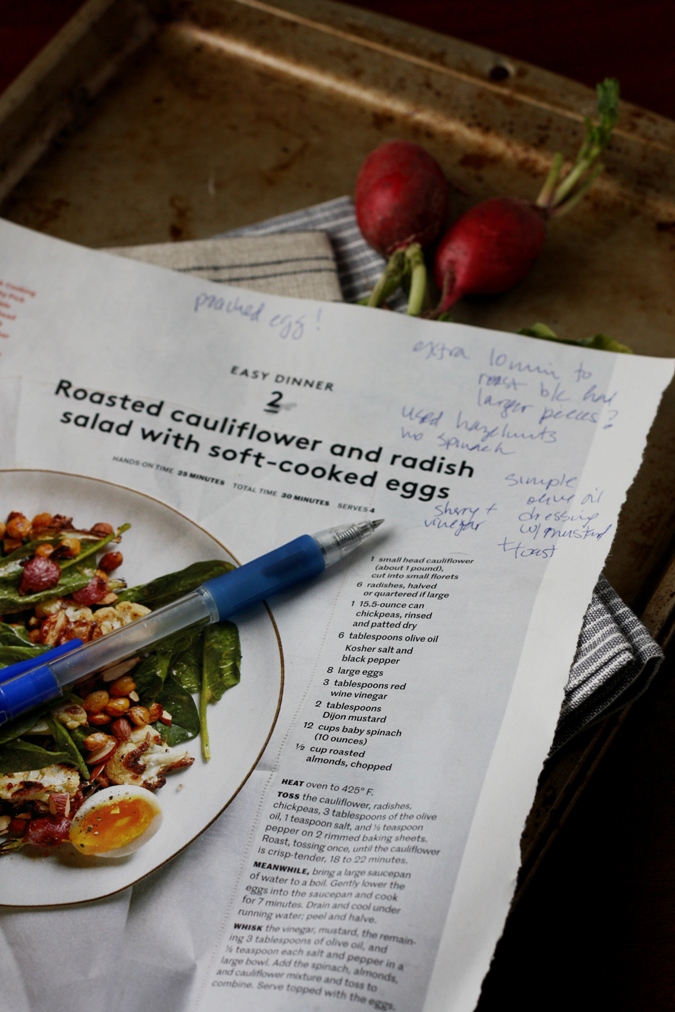 Cooking
Pick
poached egg!
extra 10 min to
roast b/c had
larger pieces?
used hazelnuts
no spinach
simple
olive oil
dressing
w/ mustard
+ toast
sherry +
vinegar
EASY DINNER
2
Roasted cauliflower and radish
salad with soft-cooked eggs
HANDS-ON TIME 25 MINUTES TOTAL TIME 30 MINUTES SERVES 4
1 small head cauliflower
(about 1 pound),
cut into small florets
6 radishes, halved
or quartered if large
1 15.5-ounce can
chickpeas, rinsed
and patted dry
6 tablespoons olive oil
Kosher salt and
black pepper
8 large eggs
3 tablespoons red
wine vinegar
2 tablespoons
Dijon mustard
12 cups baby spinach
(10 ounces)
½ cup roasted
almonds, chopped
HEAT oven to 425° F.
TOSS the cauliflower, radishes,
chickpeas, 3 tablespoons of the olive
oil, 1 teaspoon salt, and ½ teaspoon
pepper on 2 rimmed baking sheets.
Roast, tossing once, until the cauliflower
is crisp-tender, 18 to 22 minutes.
MEANWHILE, bring a large saucepan
of water to a boil. Gently lower the
eggs into the saucepan and cook
for 7 minutes. Drain and cool under
running water; peel and halve.
WHISK the vinegar, mustard, the remain-
ing 3 tablespoons of olive oil, and
½ teaspoon each salt and pepper in a
large bowl. Add the spinach, almonds,
and cauliflower mixture and toss to
combine. Serve topped with the eggs.